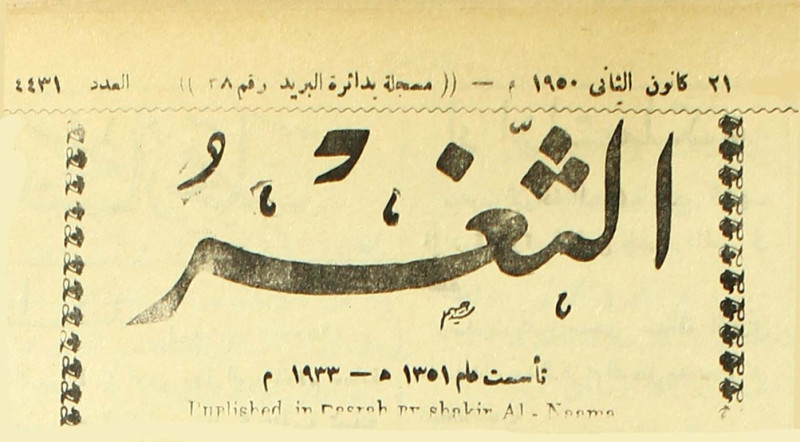 ٢١ كانون الثاني ١٩٥٠ م — (( مسجلة بدائرة البريد رقم ٢٨ )) العدد ٤٤٣١
الثَّغْرُ
تأسست عام ١٣٥١ ه — ١٩٣٣ م
Published in Basrah by shakir Al - Neama